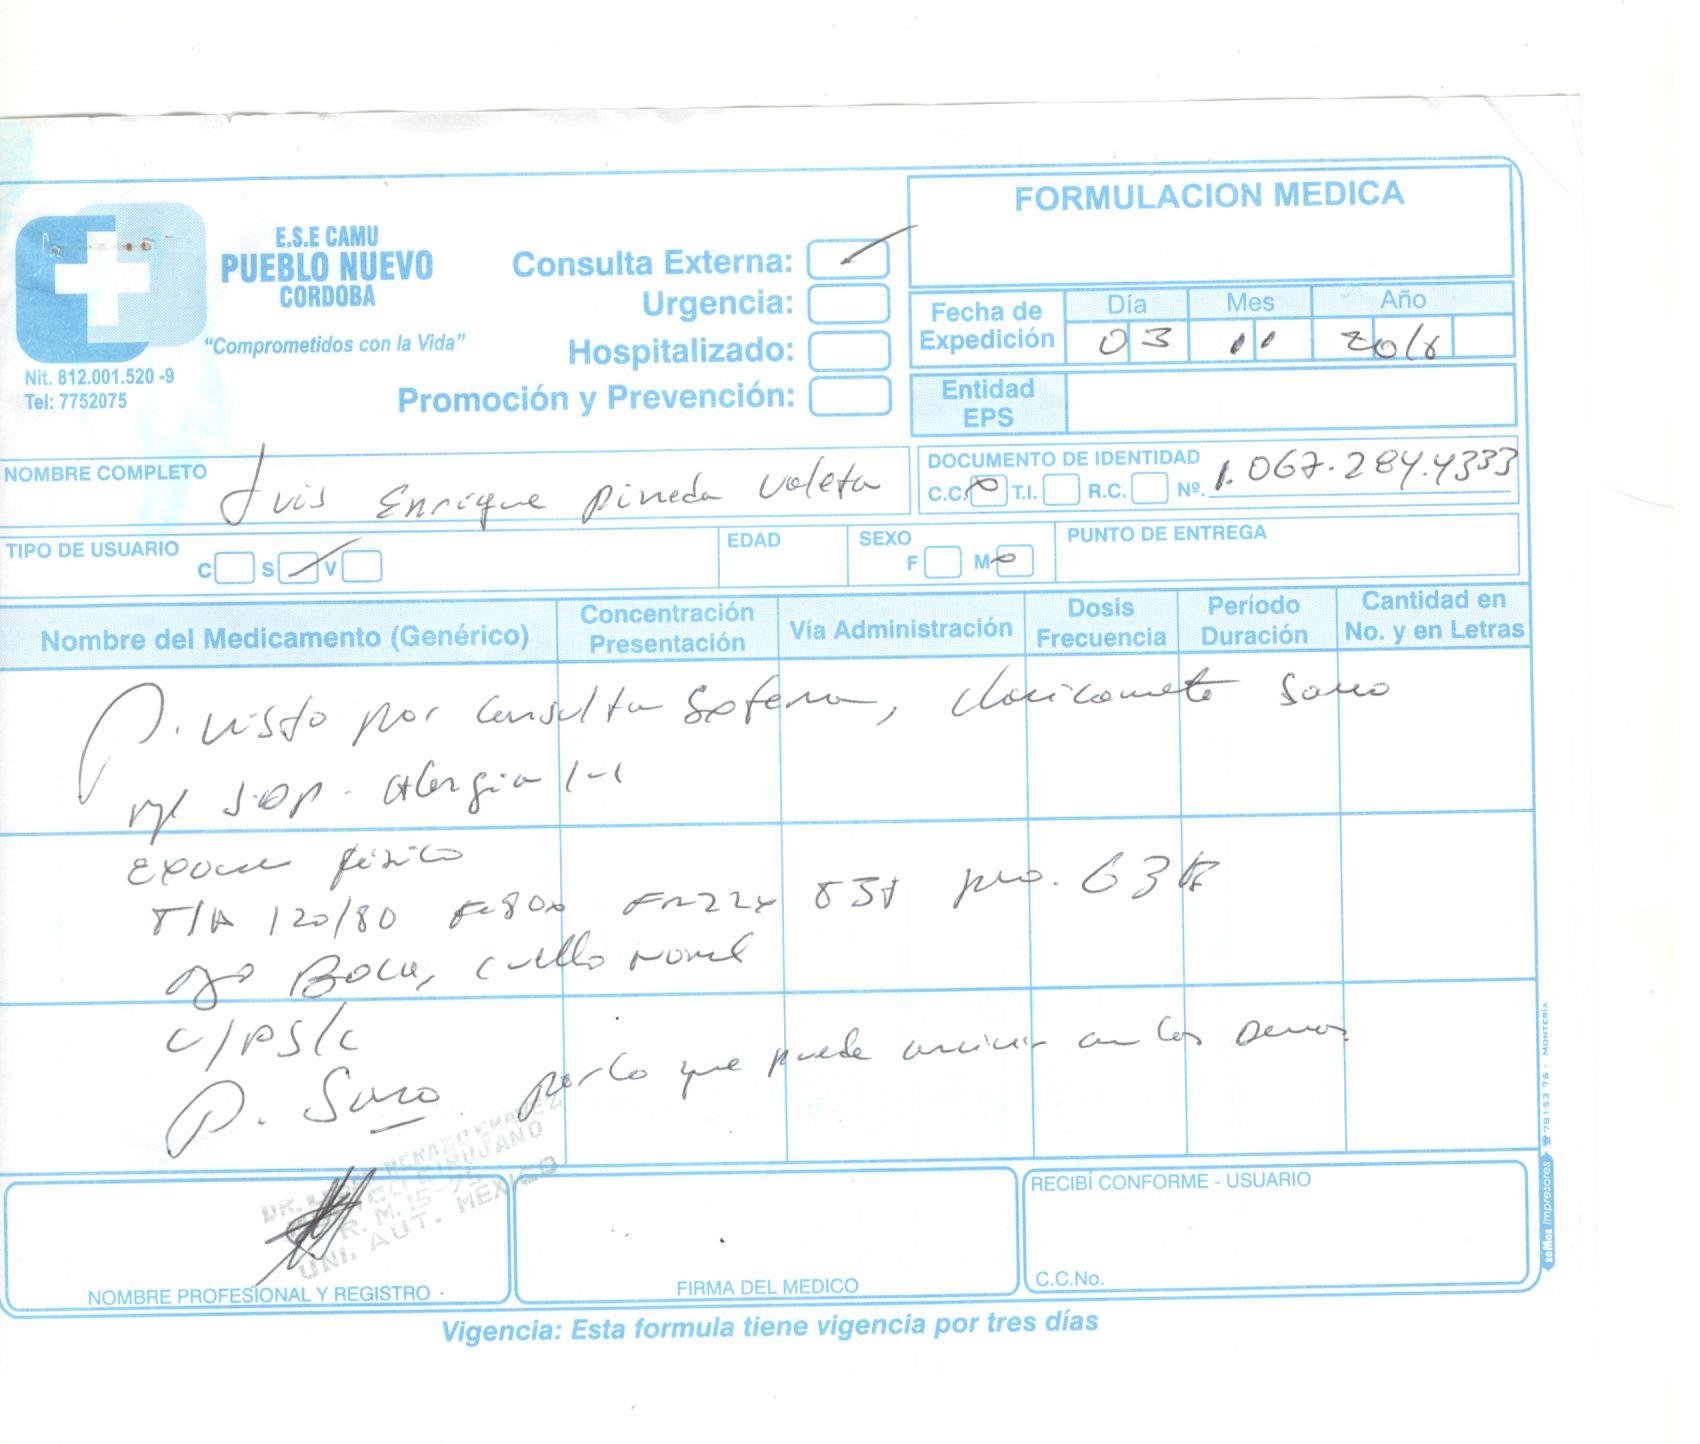 FORMULACION MEDICA
E.S.E CAMU
PUEBLO NUEVO
CORDOBA
"Comprometidos con la Vida"
Nit. 812.001.520 -9
Tel: 7752075
Consulta Externa:
Urgencia:
Hospitalizado:
Promoción y Prevención:
Fecha de Expedición Día Mes Año
03 11
Entidad EPS
NOMBRE COMPLETO Luis Enrique Pineda Voleta
DOCUMENTO DE IDENTIDAD
C.C. T.I. R.C. Nº. 1.067.284.4333
TIPO DE USUARIO C S V
EDAD
SEXO F M
PUNTO DE ENTREGA
Nombre del Medicamento (Genérico) Concentración Presentación Vía Administración Dosis Frecuencia Período Duración Cantidad en No. y en Letras
P. visto por Consulta Externa, clinicamente sano
Alergia (-)
Examen fisico
T/A 120/80 Fc 80x Fr 22x
Boca, cuello normal
C/P S/C
P. Sano por lo que puede con los
DR.
CIRUJANO
R. M. 15-75
UNI. AUT. MEXICO
NOMBRE PROFESIONAL Y REGISTRO
FIRMA DEL MEDICO
RECIBÍ CONFORME - USUARIO
C.C.No.
Vigencia: Esta formula tiene vigencia por tres días
soMos Impresores ☎ 78153 76 - MONTERÍA